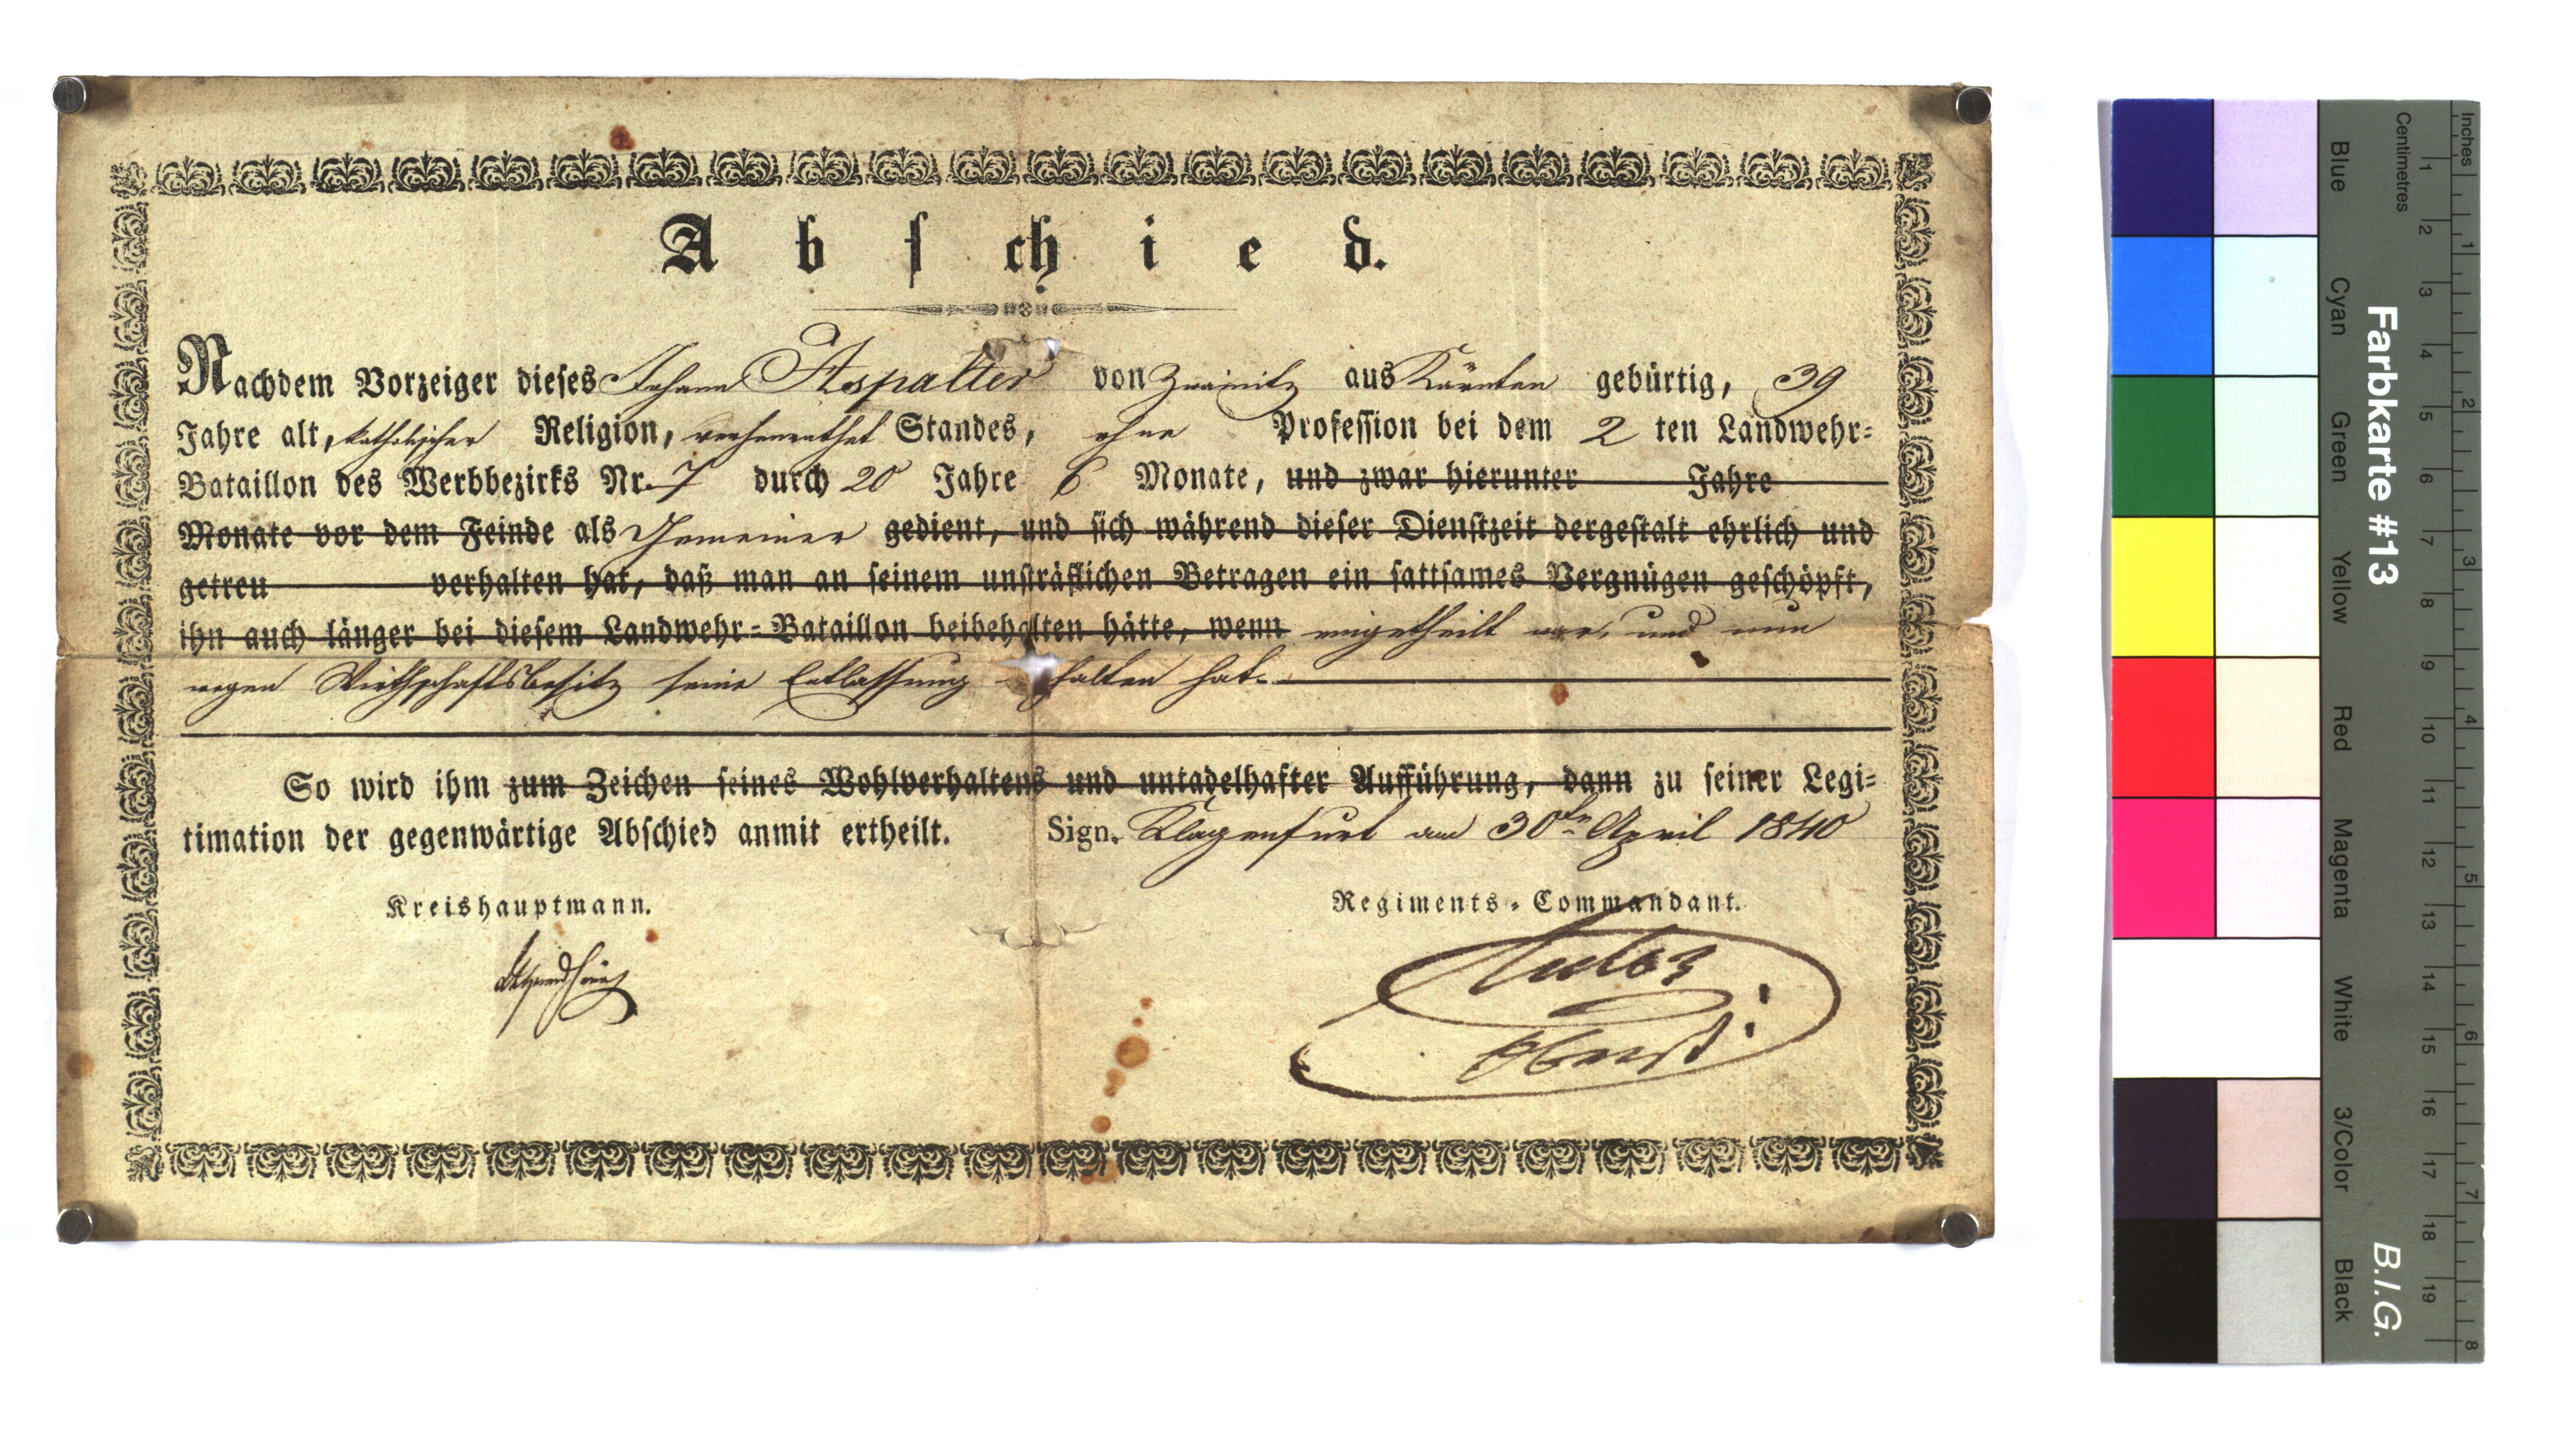 Abschied.
Nachdem Vorzeiger dieses Johann Aspalter von Zwainitz aus Kärnten gebürtig, 39
Jahre alt, katholischer Religion, verheurathet Standes, ohne Profession bei dem 2 ten Landwehr=
Bataillon des Werbbezirks Nr. 7 durch 20 Jahre 6 Monate, und zwar hierunter Jahre
Monate vor dem Feinde als Gemeiner gedient, und sich während dieser Dienstzeit dergestalt ehrlich und
getreu verhalten hat, daß man an seinem unsträflichen Betragen ein sattsames Vergnügen geschöpft,
ihn auch länger bei diesem Landwehr=Bataillon beibehalten hätte, wenn eingetheilt war, und nun
wegen Wirthschaftsbesitz seine Entlassung halten hat.
So wird ihm zum Zeichen seines Wohlverhaltens und untadelhafter Aufführung, dann zu seiner Legi=
timation der gegenwärtige Abschied anmit ertheilt. Sign. Klagenfurt am 30ten April 1840
Kreishauptmann. Regiments=Commandant.
Oberst
Farbkarte #13 B.I.G.
Inches 1 2 3 4 5 6 7 8
Centimetres 1 2 3 4 5 6 7 8 9 10 11 12 13 14 15 16 17 18 19
Blue Cyan Green Yellow Red Magenta White 3/Color Black